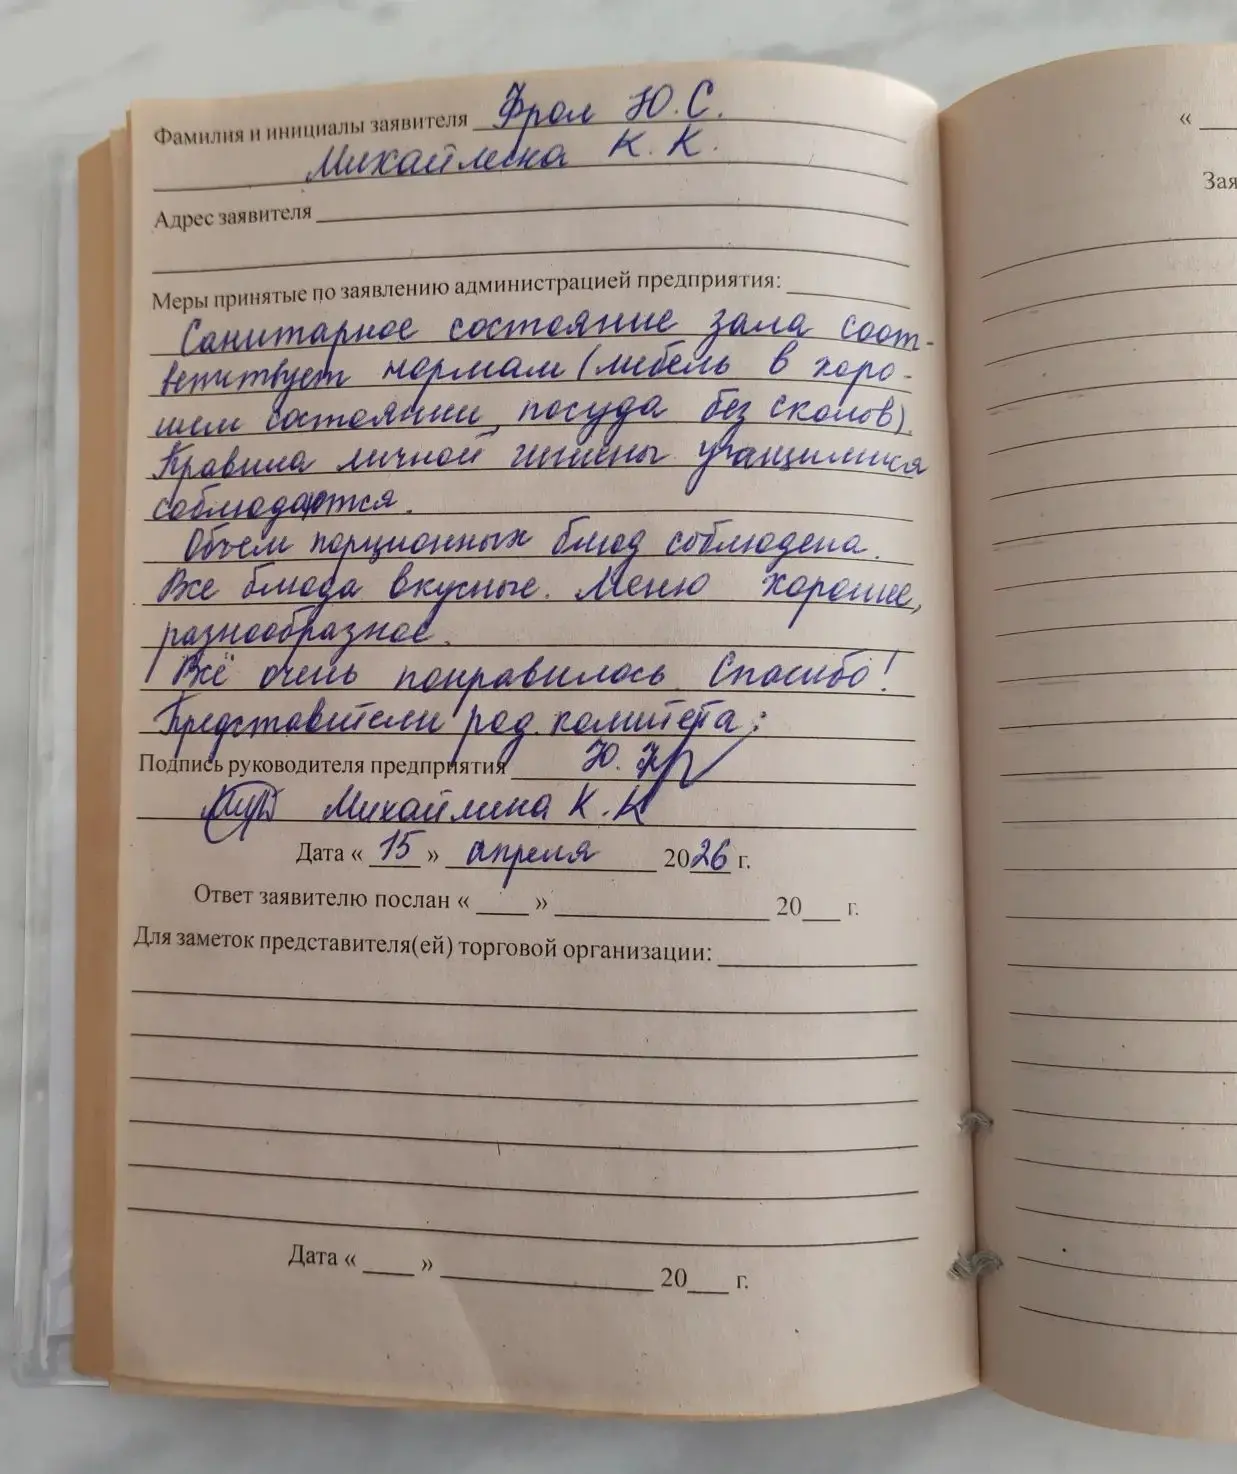 Фамилия и инициалы заявителя Фрол Ю. С.
Михайлина К. К.
Адрес заявителя
Меры принятые по заявлению администрацией предприятия:
Санитарное состояние зала соот-
ветствует нормам (мебель в хоро-
шем состоянии, посуда без сколов).
Правила личной гигиены учащимися
соблюдаются.
Объем порционных блюд соблюдена.
Все блюда вкусные. Меню хорошее,
разнообразное.
Всё очень понравилось. Спасибо!
Представители род. комитета:
Подпись руководителя предприятия Ю.
Михайлина К. К
Дата « 15 » апреля 2026 г.
Ответ заявителю послан « » 20 г.
Для заметок представителя(ей) торговой организации:
Дата « » 20 г.
«
Зая